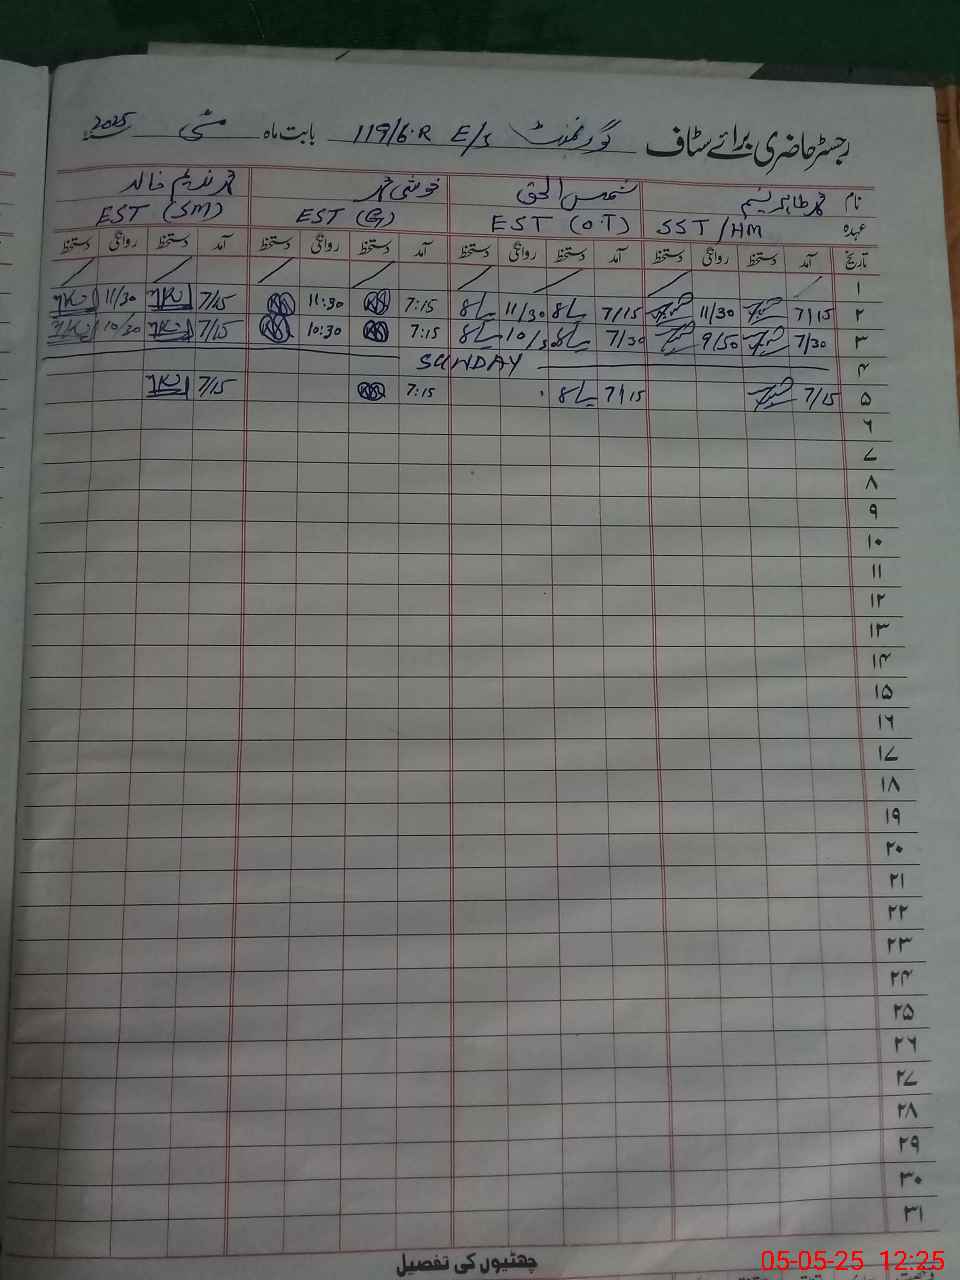 رجسٹر حاضری برائے سٹاف گورنمنٹ E/S 119/6.R بابت ماہ مئی 2025
نام محمد طاہر نسیم شمس الحق خوشی محمد محمد ندیم خالد
عہدہ SST/HM EST (OT) EST EST (SM)
تاریخ آمد دستخط روانگی دستخط آمد دستخط روانگی دستخط آمد دستخط روانگی دستخط آمد دستخط روانگی دستخط
۱
۲ 7/15 11/30 7/15 11/30 7:15 11:30 7/15 11/30
۳ 7/30 9/50 7/30 7:15 10:30 7/15 10/30
۴ SUNDAY
۵ 7/15 7/15 7:15 7/15
۶
۷
۸
۹
۱۰
۱۱
۱۲
۱۳
۱۴
۱۵
۱۶
۱۷
۱۸
۱۹
۲۰
۲۱
۲۲
۲۳
۲۴
۲۵
۲۶
۲۷
۲۸
۲۹
۳۰
۳۱
چھٹیوں کی تفصیل
05-05-25 12:25